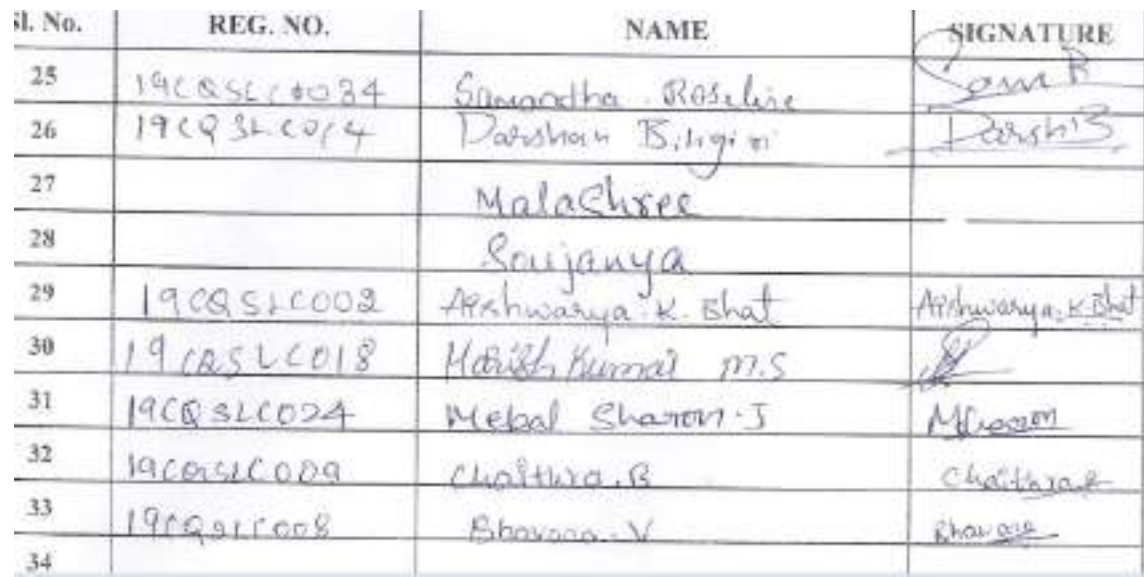 Sl. No. REG. NO. NAME SIGNATURE
25 19CQSLC034 Samandha Roseline Sam R
26 19CQSLC014 Darshan Biligiri Darshi B
27 Malashree
28 Soujanya
29 19CQSLC002 Aishwarya.K.Bhat Aishwarya.K.Bhat
30 19CQSLC018 Harish Kumar M.S
31 19CQSLC024 Mebal Sharon.J
32 19CQSLC009 Chaithra.B Chaithra.B
33 19CQSLC008 Bhavana.V Bhavana
34